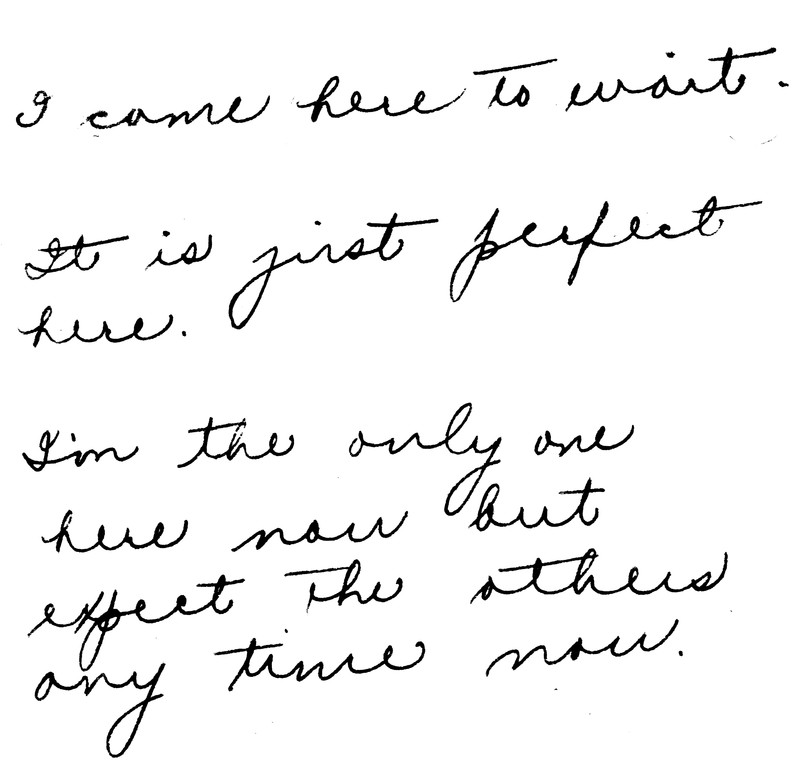 I came here to wait.
It is just perfect
here.
I'm the only one
here now but
expect the others
any time now.